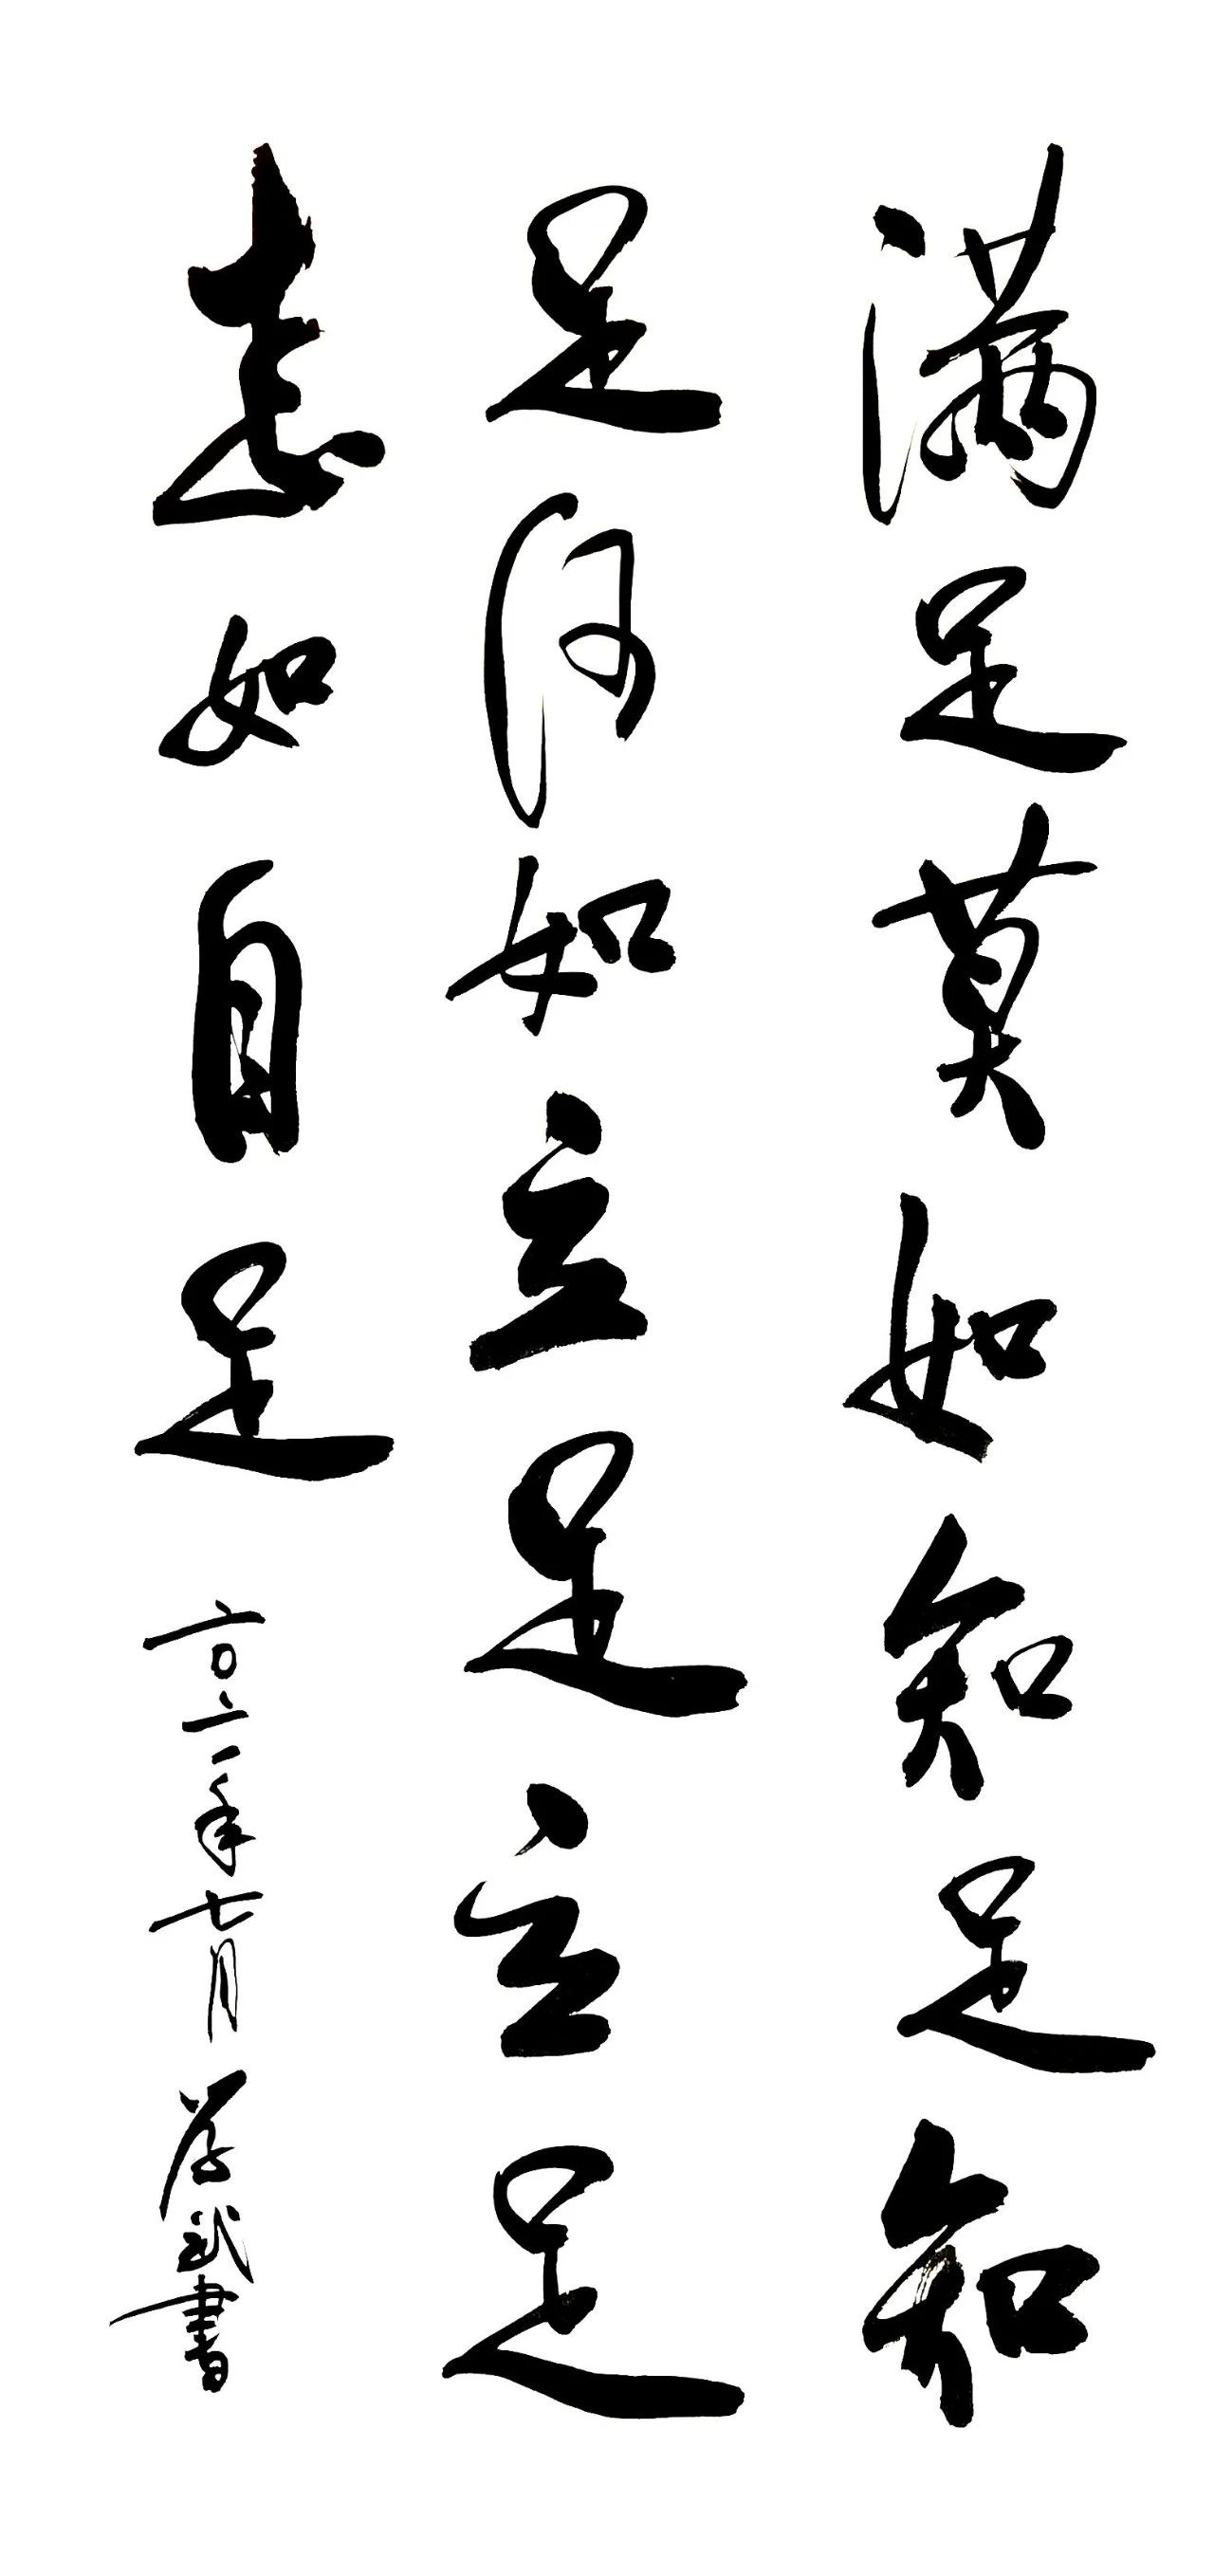 满足莫如知足知
足何如立足立足
志如自足 二〇二一年七月 孝武書